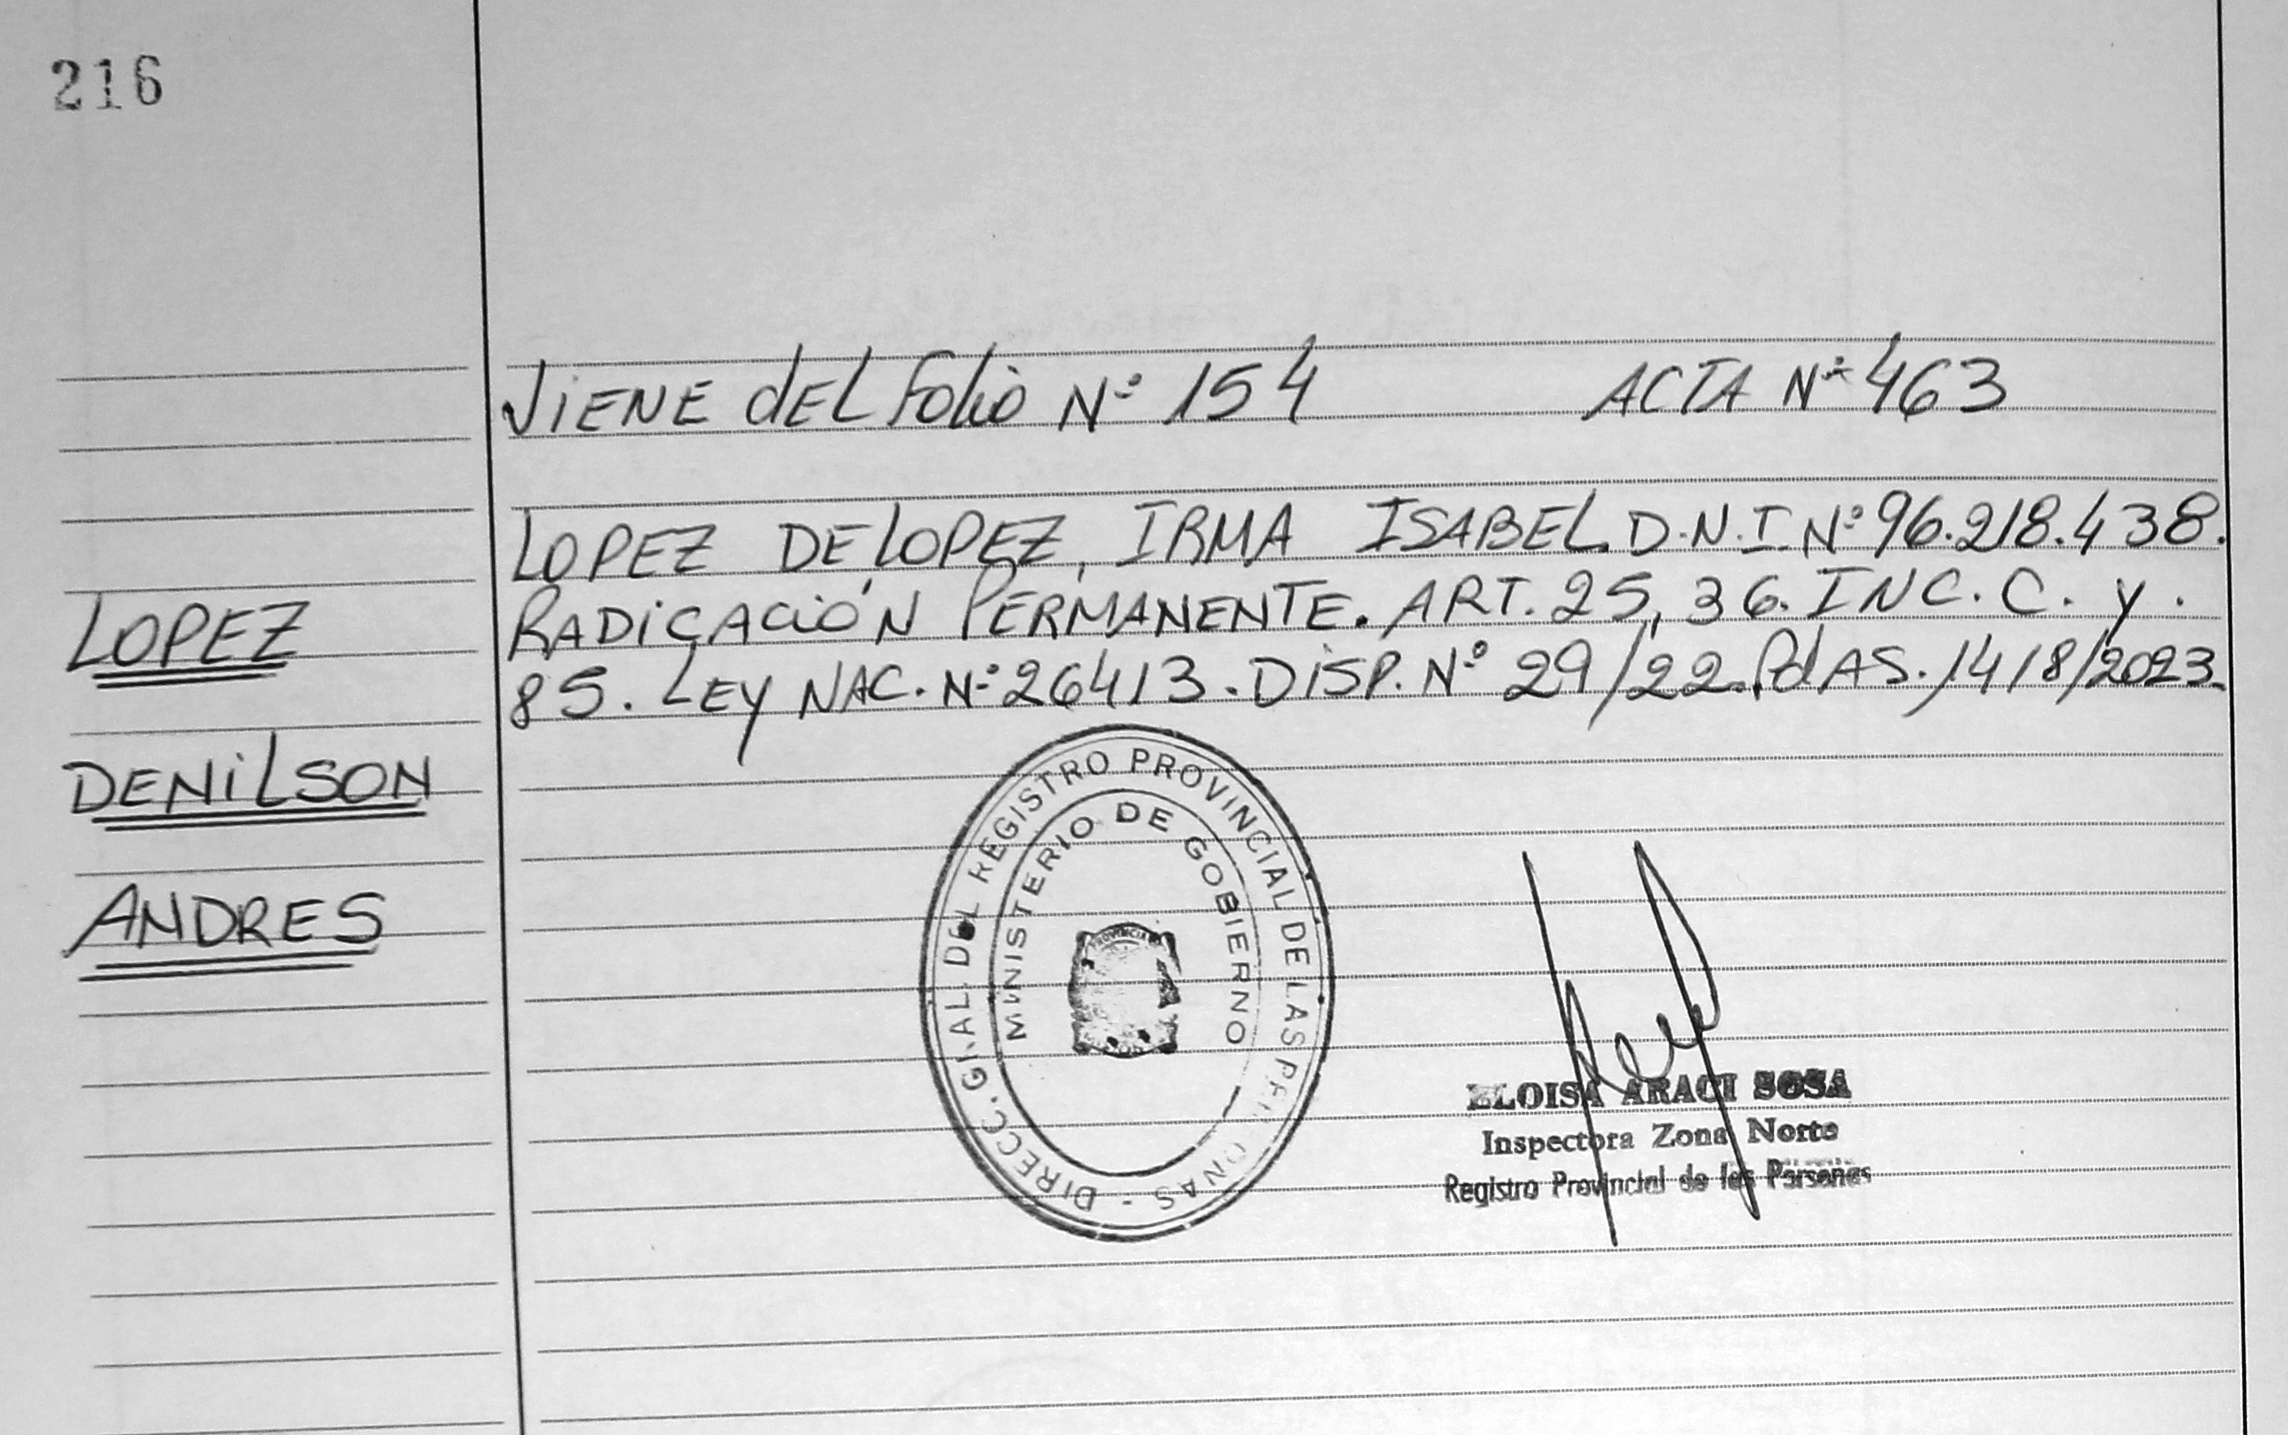 216
VIENE dEL folio Nº 154 ACTA Nº 463
LOPEZ DE LOPEZ, IRMA ISABEL. D.N.I. Nº 96.218.438.
RADICACIÓN PERMANENTE. ART. 25, 36. INC. C. y.
85. LEY NAC. Nº 26413. DISP. Nº 29/22. PdAS. 14/8/2023.
LOPEZ
DENILSON
ANDRES
DIRECC. GRAL. DEL REGISTRO PROVINCIAL DE LAS PERSONAS -
MINISTERIO DE GOBIERNO
PROVINCIA
ELOISA ARACI SOSA
Inspectora Zona Norte
Registro Provincial de las Personas